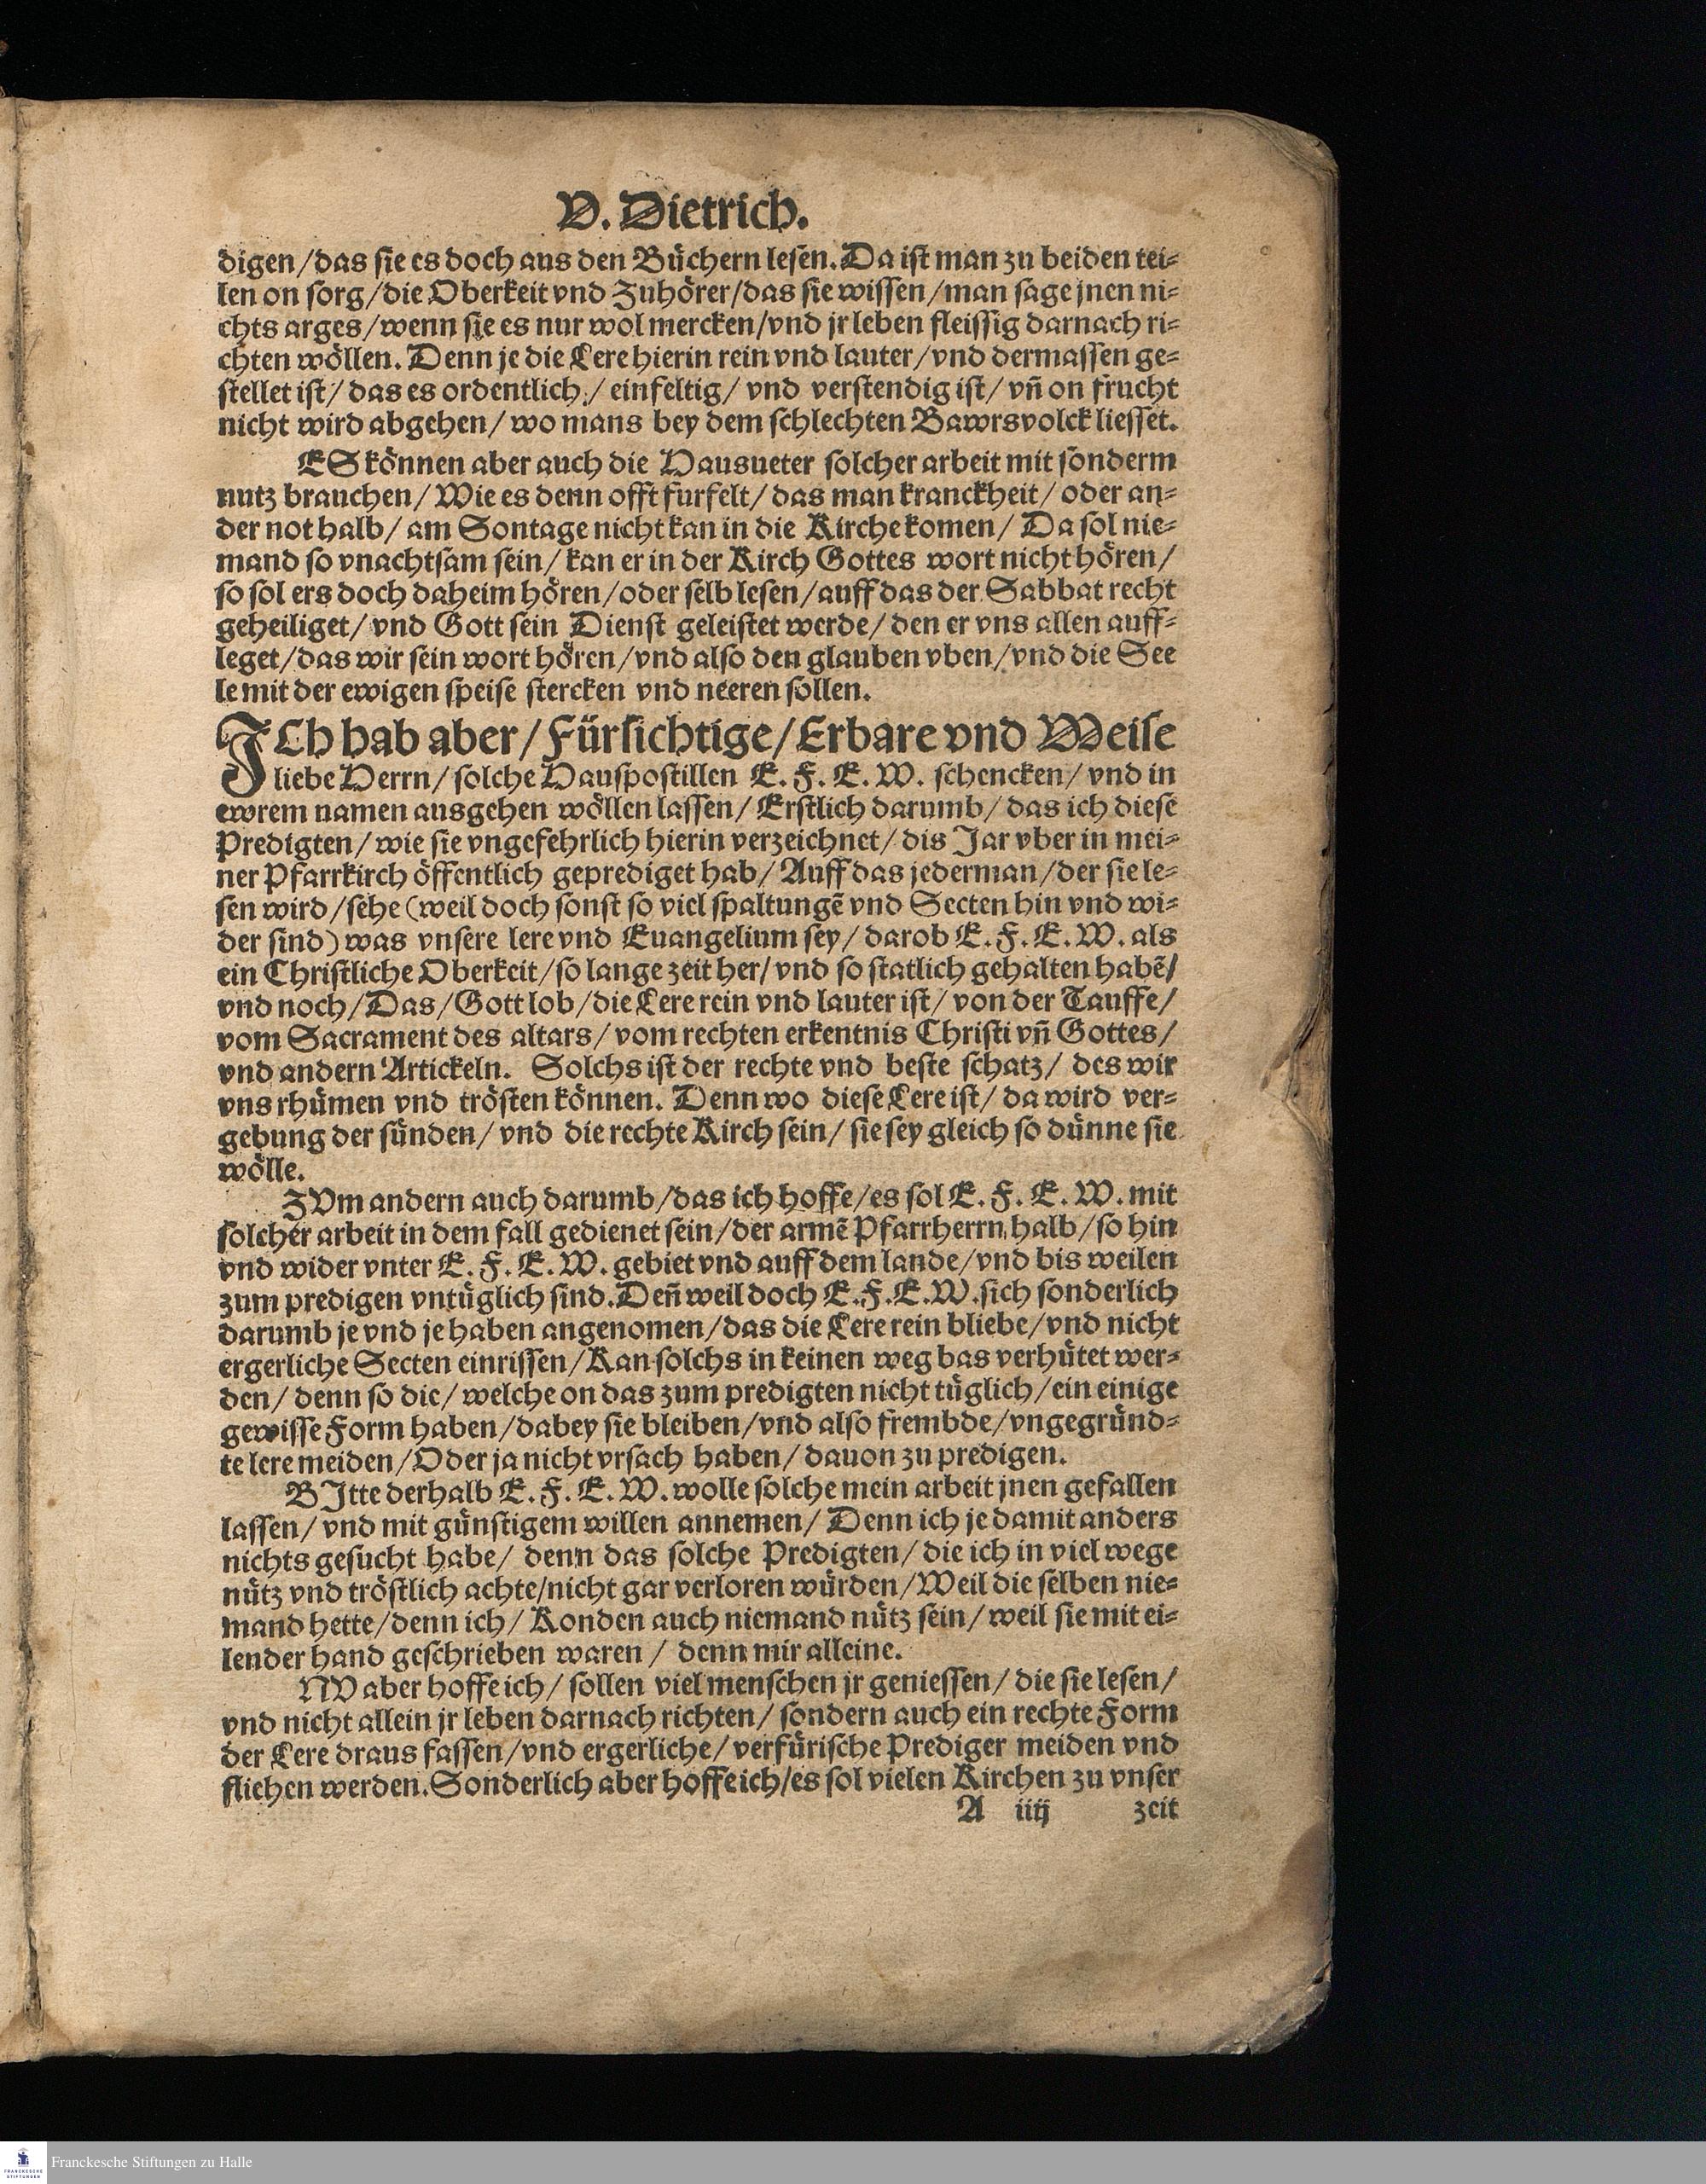 V. Dietrich.
digen/das sie es doch aus den Büchern lesen. Da ist man zu beiden tei⸗
len on sorg/die Oberkeit vnd Zuhörer/das sie wissen/man sage jnen ni⸗
chts arges/wenn sie es nur wol mercken/vnd jr leben fleissig darnach ri⸗
chten wöllen. Denn je die Lere hierin rein vnd lauter/vnd dermassen ge⸗
stellet ist/das es ordentlich/einfeltig/vnd verstendig ist/vn̄ on frucht
nicht wird abgehen/wo mans bey dem schlechten Bawrsvolck liesset.
ES können aber auch die Hausueter solcher arbeit mit sonderm
nutz brauchen/Wie es denn offt furfelt/das man kranckheit/oder an⸗
der not halb/am Sontage nicht kan in die Kirche komen/Da sol nie⸗
mand so vnachtsam sein/kan er in der Kirch Gottes wort nicht hören/
so sol ers doch daheim hören/oder selb lesen/auff das der Sabbat recht
geheiliget/vnd Gott sein Dienst geleistet werde/den er vns allen auff⸗
leget/das wir sein wort hören/vnd also den glauben vben/vnd die See
le mit der ewigen speise stercken vnd neeren sollen.
ICh hab aber/Fürsichtige/Erbare vnd Weise
liebe Herrn/solche Hauspostillen E. F. E. W. schencken/vnd in
ewrem namen ausgehen wöllen lassen/Erstlich darumb/das ich diese
Predigten/wie sie vngefehrlich hierin verzeichnet/dis Jar vber in mei⸗
ner Pfarrkirch öffentlich geprediget hab/Auff das jederman/der sie le⸗
sen wird/sehe (weil doch sonst so viel spaltungē vnd Secten hin vnd wi⸗
der sind) was vnsere lere vnd Euangelium sey/darob E. F. E. W. als
ein Christliche Oberkeit/so lange zeit her/vnd so statlich gehalten habē/
vnd noch/Das/Gott lob/die Lere rein vnd lauter ist/von der Tauffe/
vom Sacrament des altars/vom rechten erkentnis Christi vn̄ Gottes/
vnd andern Artickeln. Solchs ist der rechte vnd beste schatz/des wir
vns rhümen vnd trösten können. Denn wo diese Lere ist/da wird ver⸗
gebung der sünden/vnd die rechte Kirch sein/sie sey gleich so dünne sie
wölle.
ZVm andern auch darumb/das ich hoffe/es sol E. F. E. W. mit
solcher arbeit in dem fall gedienet sein/der armē Pfarrherrn halb/so hin
vnd wider vnter E. F. E. W. gebiet vnd auff dem lande/vnd bis weilen
zum predigen vntüglich sind. Den̄ weil doch E. F. E. W. sich sonderlich
darumb je vnd je haben angenomen/das die Lere rein bliebe/vnd nicht
ergerliche Secten einrissen/Kan solchs in keinen weg bas verhütet wer⸗
den/denn so die/welche on das zum predigten nicht tüglich/ein einige
gewisse Form haben/dabey sie bleiben/vnd also frembde/vngegründ⸗
te lere meiden/Oder ja nicht vrsach haben/dauon zu predigen.
BItte derhalb E. F. E. W. wolle solche mein arbeit jnen gefallen
lassen/vnd mit günstigem willen annemen/Denn ich je damit anders
nichts gesucht habe/denn das solche Predigten/die ich in viel wege
nütz vnd tröstlich achte/nicht gar verloren würden/Weil die selben nie⸗
mand hette/denn ich/Konden auch niemand nütz sein/weil sie mit ei⸗
lender hand geschrieben waren/denn mir alleine.
NV aber hoffe ich/sollen viel menschen jr geniessen/die sie lesen/
vnd nicht allein jr leben darnach richten/sondern auch ein rechte Form
der Lere draus fassen/vnd ergerliche/verfürische Prediger meiden vnd
fliehen werden. Sonderlich aber hoffe ich/es sol vielen Kirchen zu vnser
A iiij zeit
FRANCKESCHE STIFTUNGEN
Franckesche Stiftungen zu Halle